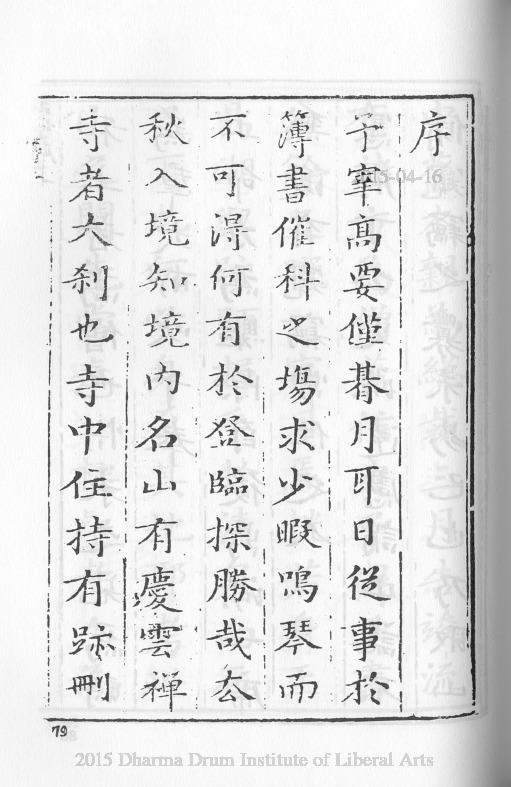 序
予宰髙要僅朞月耳日從事於
簿書催科之塲求少暇鳴琴而
不可淂何有於登臨探勝哉厺
秋入境知境内名山有慶雲禪
寺者大刹也寺中住持有跡刪
79
5-04-16
2015 Dharma Drum Institute of Liberal Arts